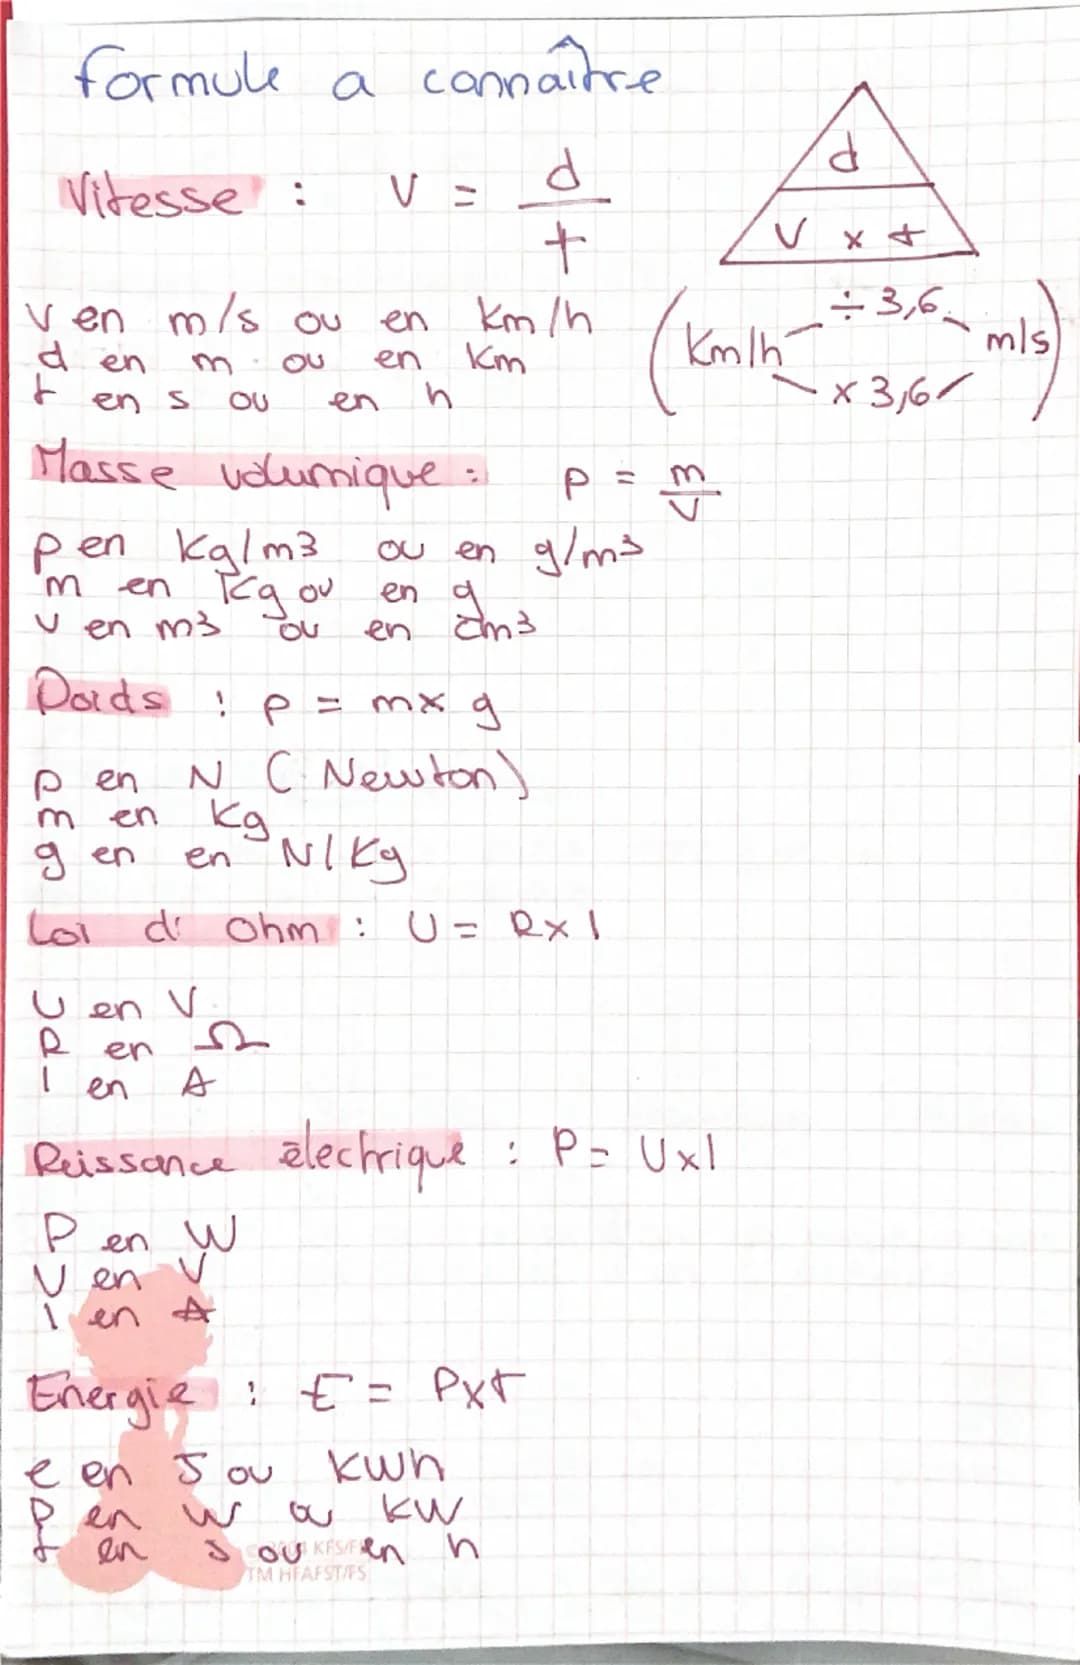 formule a connaître
Vitesse : V = d/t
d
V x t
V en m/s ou en Km/h
d en m ou en Km
t en s ou en h
(Km/h ÷ 3,6 m/s)
x 3,6
Masse volumique : p = m/v
p en Kg/m3 ou en g/m3
m en Kg ou en g
v en m3 ou en cm3
Poids : p = mx g
p en N (Newton)
m en Kg
g en en N/Kg
Loi d' Ohm : U = Rx I
U en V
R en Ω
I en A
Puissance électrique : P = UxI
P en W
U en V
I en A
Energie : E = Pxt
e en J ou kwh
P en w ou kW
t en s ou en h
KFS/F
TM HFAFST/FS